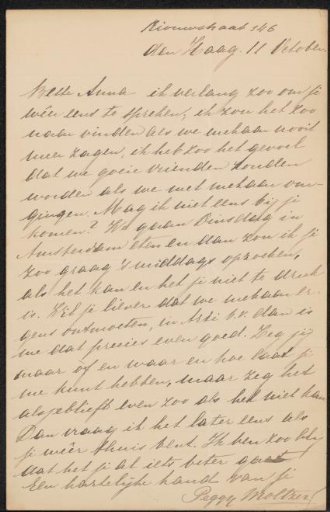 Riouwstraat 146
den Haag 11 October
Anna ik verlang zoo om je
wéér eens te spreken, ik zou het zoo
naar vinden als we mekaar nooit
meer zagen, ik heb zoo het gevoel
dat we goeie vrienden zouden
worden als we met mekaar om-
gingen. Mag ik niet eens bij je
komen? Ik ga Dinsdag in
Amsterdam eten en dan zou ik je
zoo graag 's middags opzoeken,
als het kan en het je niet te druk
is. Heb je liever dat we mekaar er-
gens ontmoeten, in Arti b.v. dan is
me dat precies even goed. Zeg jij
maar of en waar en hoe laat je
me kunt hebben, maar zeg het
alsjeblieft even zoo als het niet kan
Dan vraag ik het later eens als
je wéér thuis bent. Ik ben zoo blij
dat het je al iets beter gaat
Een hartelijke hand van je
Peggy